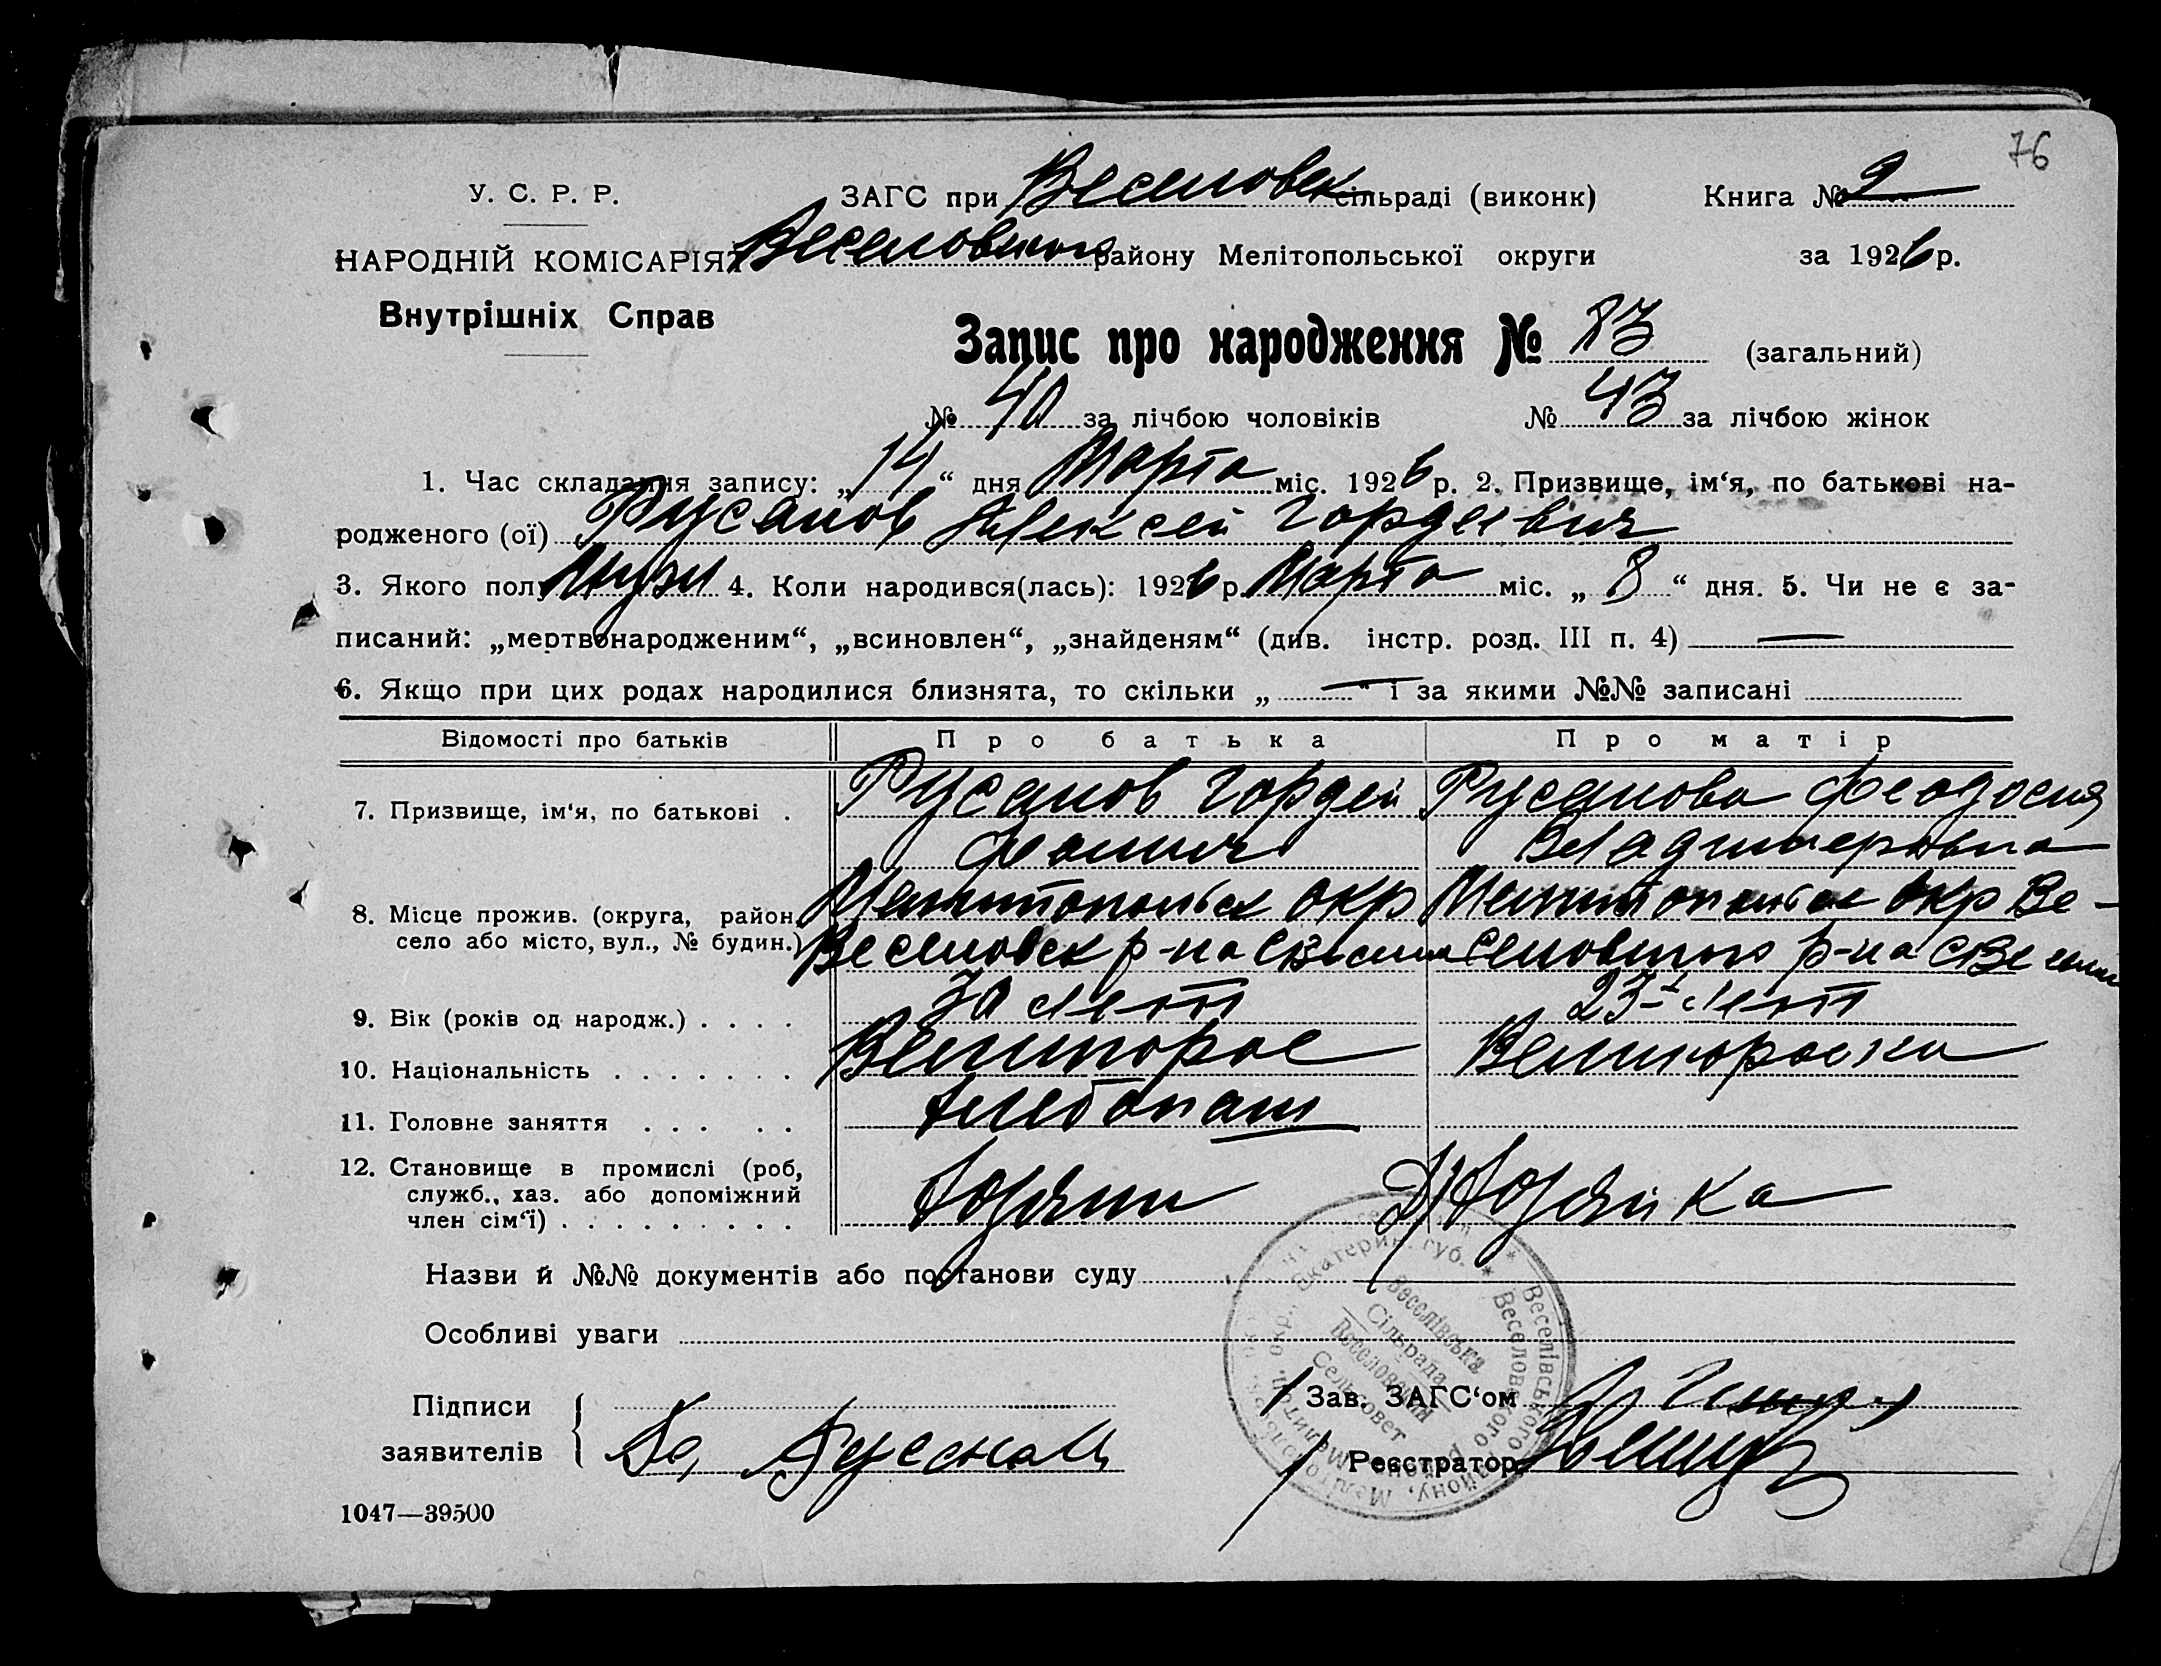 76
У. С. Р. Р.
ЗАГС при Веселовск сільраді (виконк) Книга № 2
НАРОДНІЙ КОМІСАРІЯТ Веселовского району Мелітопольської округи за 1926 р.
Внутрішніх Справ
Запис про народження № 83 (загальний)
№ 40 за лічбою чоловіків № 43 за лічбою жінок
1. Час складання запису: „14“ дня Марта міс. 1926 р. 2. Призвище, ім‘я, по батькові на-
родженого (ої) Русанов Алексей Гордеевич
3. Якого полу Мужс 4. Коли народився(лась): 1926 р. Марта міс. „8“ дня. 5. Чи не є за-
писаний: „мертвонародженим“, „всиновлен“, „знайденям“ (див. інстр. розд. III п. 4) —
6. Якщо при цих родах народилися близнята, то скільки „—“ і за якими №№ записані
Відомості про батьків Про батька Про матір
7. Призвище, ім‘я, по батькові . Русанов Гордей Русанова Феодосия
Фомич Владимеровна
8. Місце прожив. (округа, район, Мелитопольск окр Мелитопольск окр Ве-
село або місто, вул., № будин.) Веселовск р-на с Веселое селовского р-на с Веселое
9. Вік (років од народж.) . . . . 30 лет 23 лет
10. Національність . . . . . . . Великорос Великороска
11. Головне заняття . . . . . Хлебопаш
12. Становище в промислі (роб, Хозяин Хозяйка
служб., хаз. або допоміжний
член сім‘ї) . . . . . . . . .
Назви й №№ документів або постанови суду
Особливі уваги
Веселівська
Сільрада
Веселовский
Сельсовет
Підписи Зав. ЗАГС‘ом
заявителів Реєстратор
1047—39500